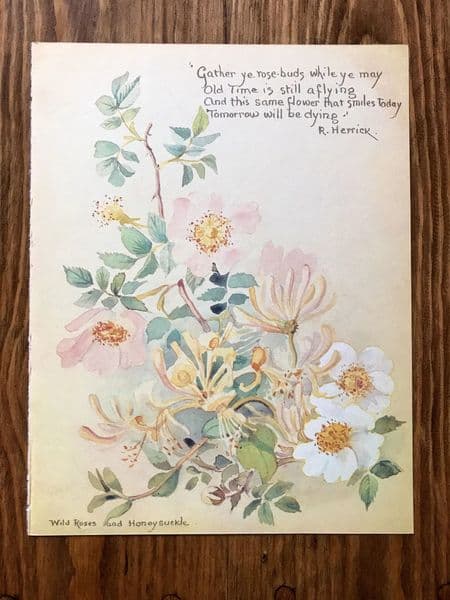 "Gather ye rose-buds while ye may
Old Time is still aflying
And this same flower that smiles today
Tomorrow will be dying"
R. Herrick.
Wild Roses and Honeysuckle